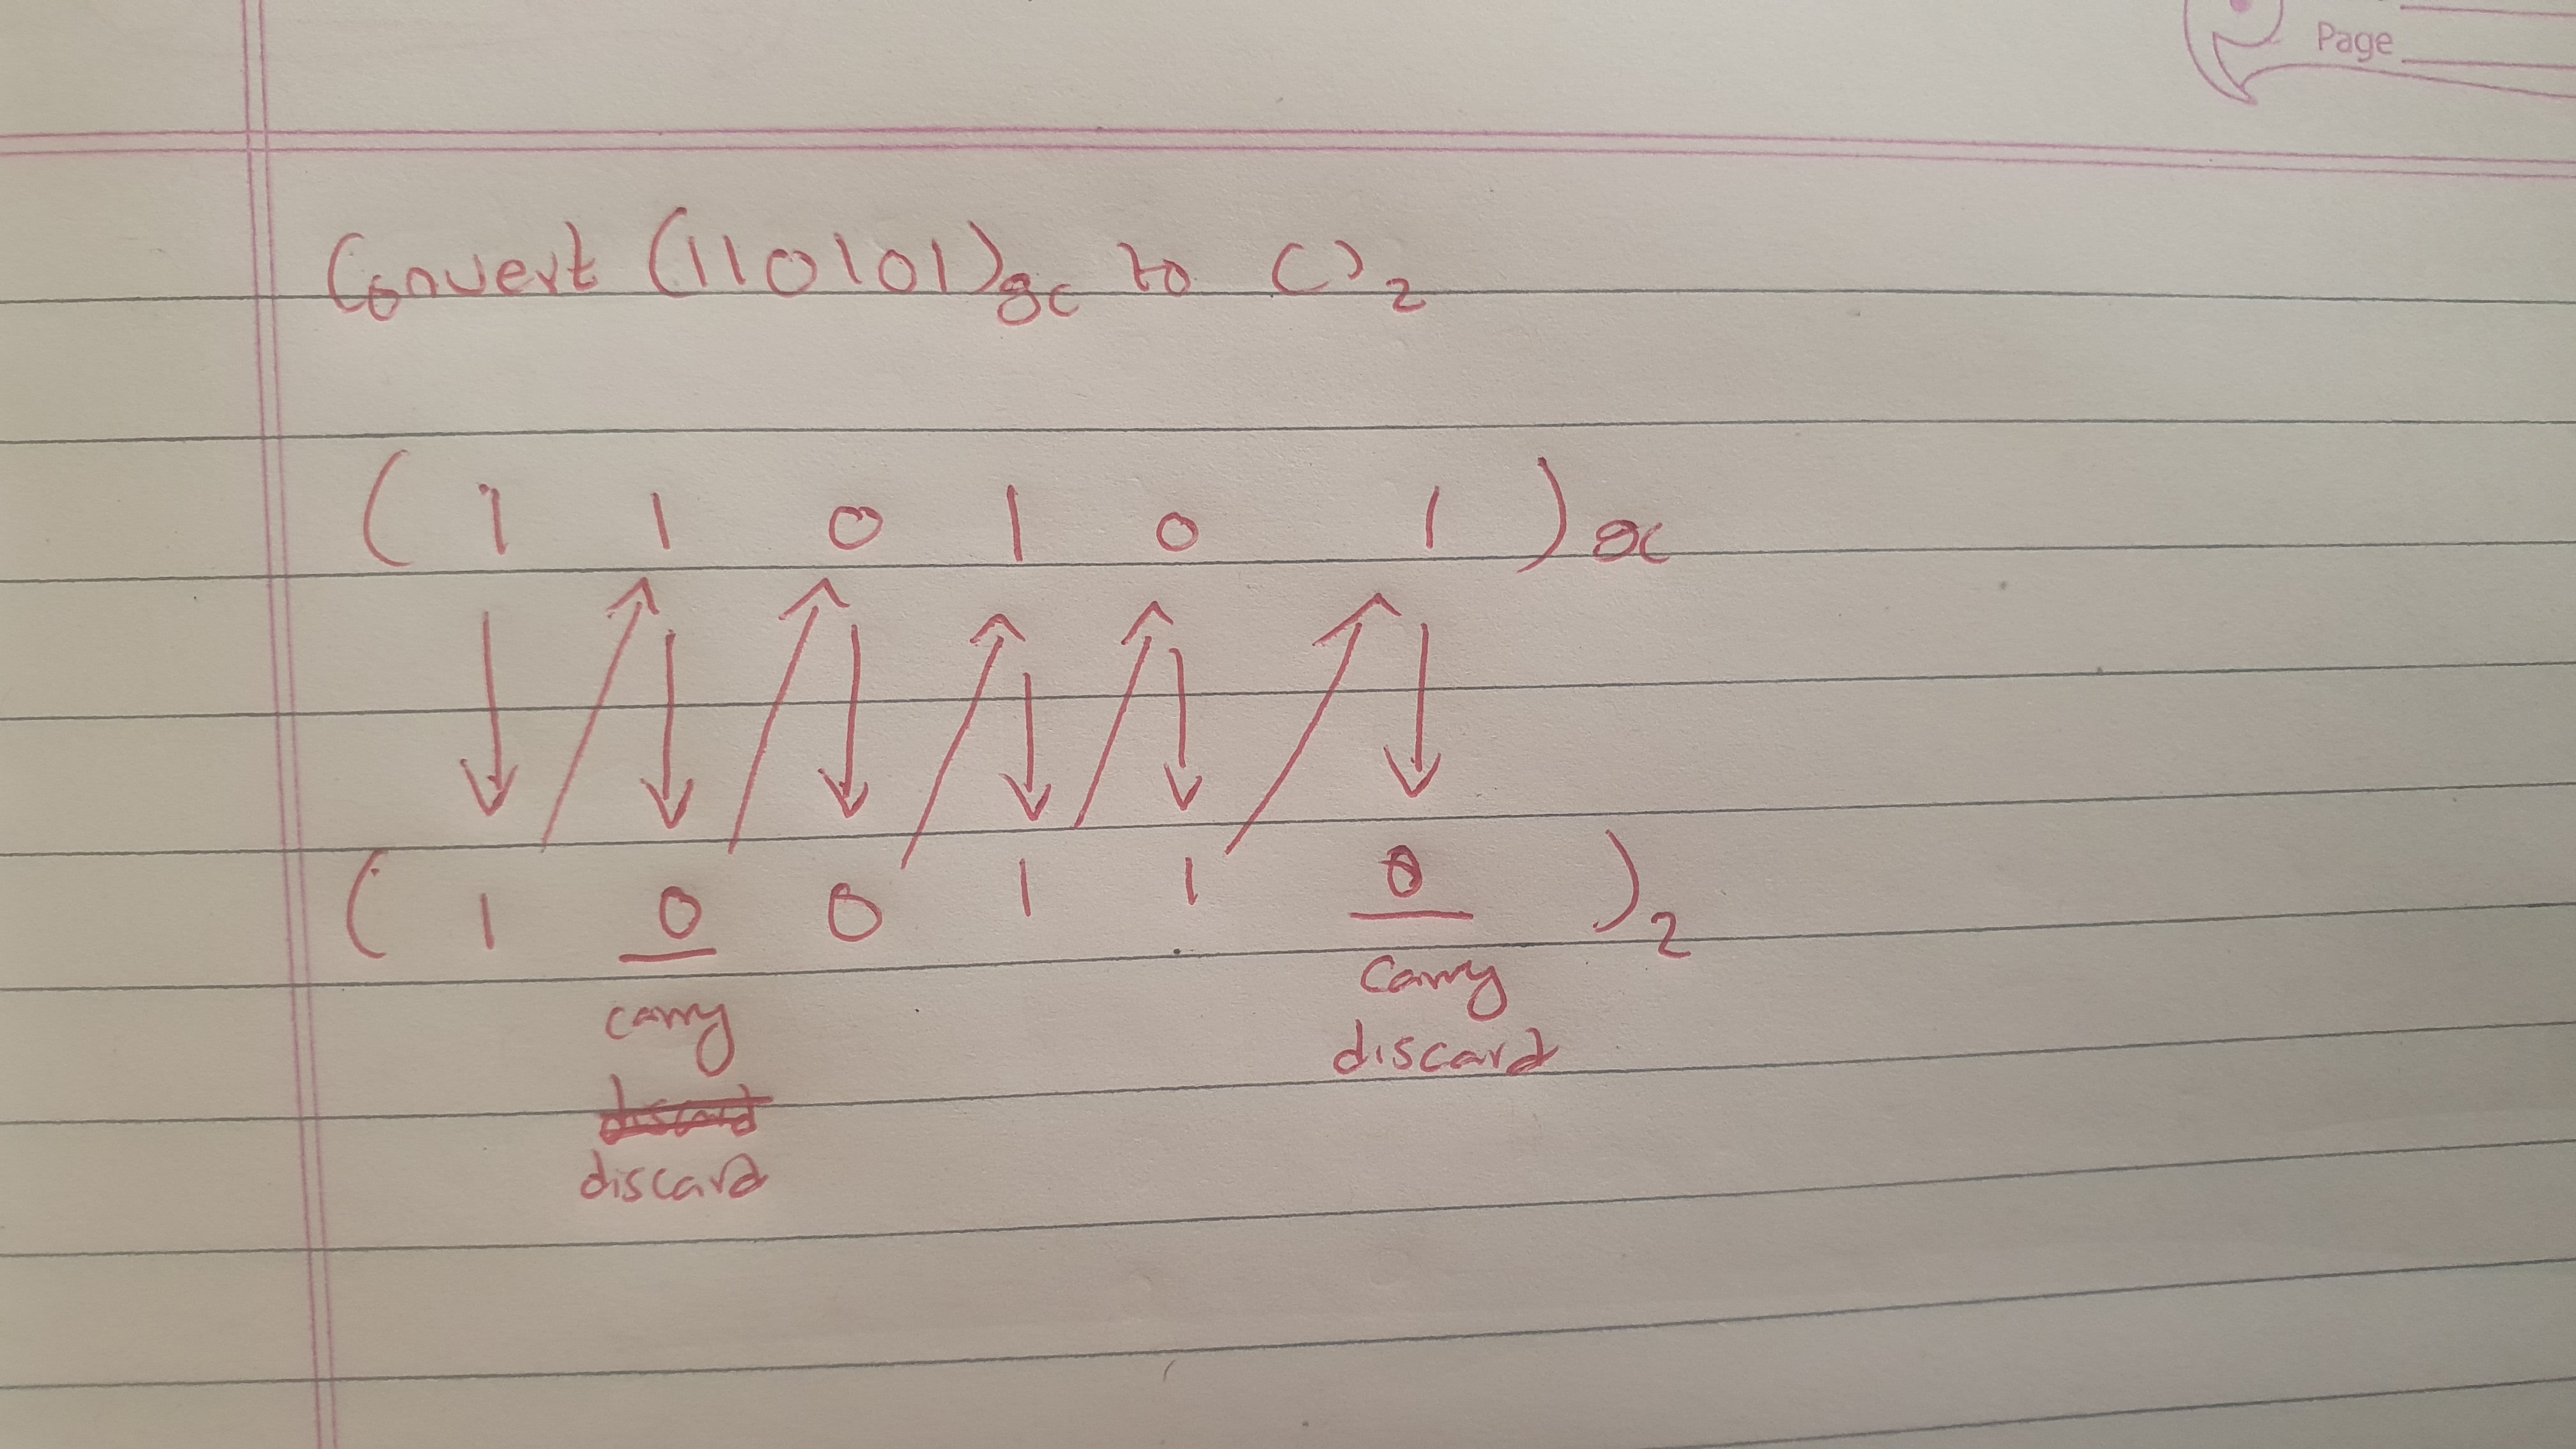 Convert (110101)gc to ()2
(1 1 0 1 0 1)gc
(1 0 0 1 1 0)2
carry carry
discard discard
discard
Page